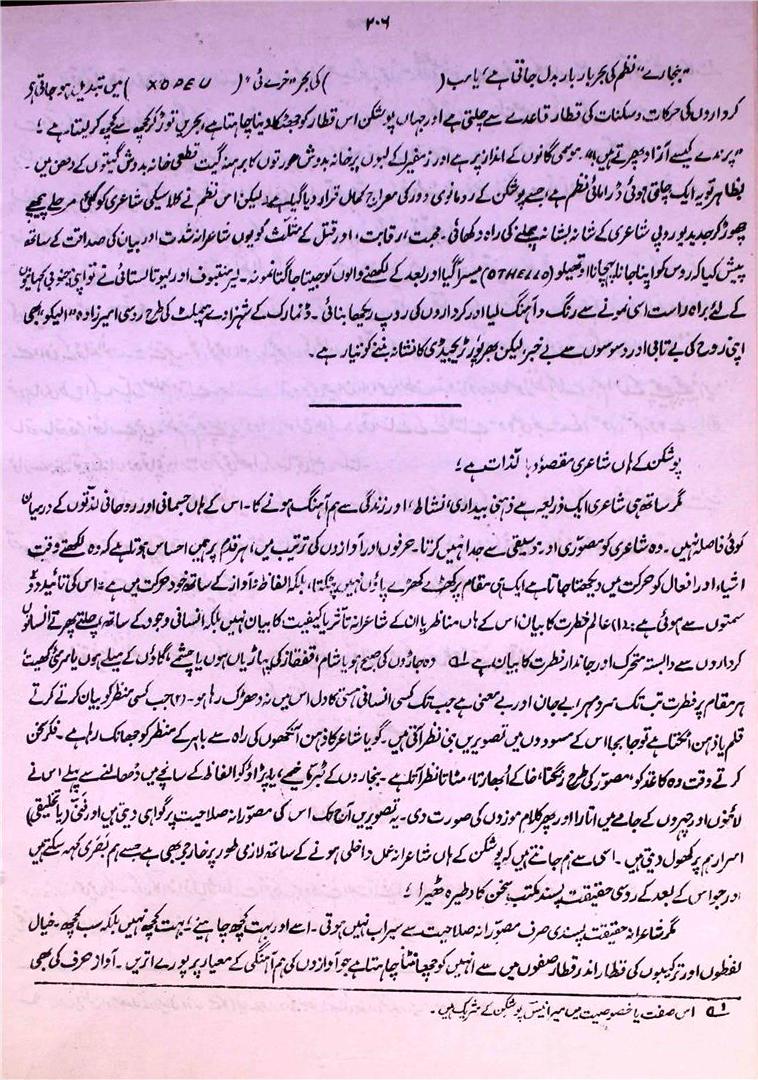 ۲۰۶
"بنجارے" نظم کی بحر بار بار بدل جاتی ہے، یامب ( ) کی بحر "خرے ئی" ( XOPEU ) میں تبدیل ہو جاتی ہے
کرداروں کی حرکات و سکنات کی قطار قاعدے سے چلتی ہے اور جہاں پوشکن اس قطار کو جھٹکا دینا چاہتا ہے، بحریں توڑ کر کچھ سے کچھ کر لیتا ہے؛
"پرندے کیسے آزاد پھرتے ہیں" موسمی گانوں کے انداز پر ہے اور زمفیرا کے لبوں پر خانہ بدوش عورتوں کا برہنہ گیت قطعی خانہ بدوش گیتوں کے دھن میں۔
بظاہر تو یہ ایک چلتی ہوئی ڈرامائی نظم ہے جسے پوشکن کے رومانوی دور کی معراج کمال قرار دیا گیا ہے، لیکن اس نظم نے کلاسیکی شاعری کو کئی مرحلے پیچھے
چھوڑ کر جدید یوروپی شاعری کے شانہ بشانہ چلنے کی راہ دکھائی، محبت، رقابت، اور قتل کے مثلث کو یوں شاعرانہ شدت اور بیان کی صداقت کے ساتھ
پیش کیا کہ روس کو اپنا جانا پہچانا اوتھیلو (OTHELLO) میسر آ گیا اور بعد کے لکھنے والوں کو جیتا جاگتا نمونہ۔ لیرمنتوف اور لیو تالستائی نے تو اپنی جنوبی کہانیوں
کے لئے براہ راست اسی نمونے سے رنگ و آہنگ لیا اور کرداروں کی روپ ریکھا بنائی۔ ڈنمارک کے شہزادے ہیملٹ کی طرح روسی امیرزادہ "الیکو" بھی
اپنی روح کی بے تابی اور وسوسوں سے بے خبر، لیکن بھرپور ٹریجیڈی کا نشانہ بننے کو تیار ہے۔
پوشکن کے ہاں شاعری مقصود بالذات ہے؛
مگر ساتھ ہی شاعری ایک ذریعہ ہے ذہنی بیداری، انشاط، اور زندگی سے ہم آہنگ ہونے کا۔ اس کے ہاں جسمانی اور روحانی لذتوں کے درمیان
کوئی فاصلہ نہیں۔ وہ شاعری کو مصوری اور موسیقی سے جدا نہیں کرتا۔ حرفوں اور آوازوں کی ترتیب میں، ہر قدم پر ہمیں احساس ہوتا ہے کہ وہ لکھتے وقت
اشیاء اور افعال کو حرکت میں دیکھتا جاتا ہے ایک ہی مقام پر کھڑے کھڑے پاؤں نہیں پٹکتا، بلکہ الفاظ و آواز کے ساتھ خود حرکت میں ہے؛ اس کی تائید دو
سمتوں سے ہوئی ہے: (۱) عالم فطرت کا بیان اس کے ہاں مناظر یا ان کے شاعرانہ تاثر یا کیفیت کا بیان نہیں بلکہ انسانی وجود کے ساتھ، چلتے پھرتے انسانوں
کرداروں سے وابستہ متحرک اور جاندار فطرت کا بیان ہے لہ۔ وہ جاڑوں کی صبح ہو یا شام، قفقاز کی پہاڑیاں ہوں یا چشمے، گاؤں کے میلے ہوں یا کھیت؛
ہر مقام پر فطرت تب تک سرد مہر، بے جان اور بے معنی ہے جب تک کسی انسانی ہستی کا دل اس میں نہ دھڑک رہا ہو۔ (۲) جب کسی منظر کو بیان کرتے کرتے
قلم یا ذہن اٹکتا ہے تو جابجا اس کے مسودوں میں تصویریں بنی نظر آتی ہیں۔ گویا شاعر کا ذہن آنکھوں کی راہ سے باہر کے منظر کو جھانک رہا ہے۔ فکر سخن
کرتے وقت وہ کاغذ کو، مصور کی طرح رنگتا، خاکے ابھارتا، مٹاتا نظر آتا ہے۔ بنجاروں کے خیمے، یا پڑاؤ کو الفاظ کے سانچے میں ڈھالنے سے پہلے اس نے
لائنوں اور چہروں کے جامے میں اتارا اور پھر کلام موزوں کی صورت دی۔ یہ تصویریں آج تک اس کی مصورانہ صلاحیت پر گواہی دیتی ہیں اور فنی (یا تخلیقی)
اسرار ہم پر کھول دیتی ہیں۔ اسی سے ہم جانتے ہیں کہ پوشکن کے ہاں شاعرانہ عمل داخلی ہونے کے ساتھ لازمی طور پر خارجی بھی ہے جسے ہم بصری کہہ سکتے ہیں
اور جو اس کے بعد کے روسی حقیقت پسند مکتب سخن کا وطیرہ ٹھیرا؛
مگر شاعرانہ حقیقت پسندی صرف مصورانہ صلاحیت سے سیراب نہیں ہوتی۔ اسے اور بہت کچھ چاہئے؛ بہت کچھ نہیں بلکہ سب کچھ۔ خیال
لفظوں اور ترکیبوں کی قطار اندر قطار صفوں میں سے انہیں کو چھانٹنا چاہتا ہے جو آوازوں کی ہم آہنگی کے معیار پر پورے اتریں۔ آواز حرف کی بھی
لہ اس صفت یا خصوصیت میں میر انیس پوشکن کے شریک ہیں۔